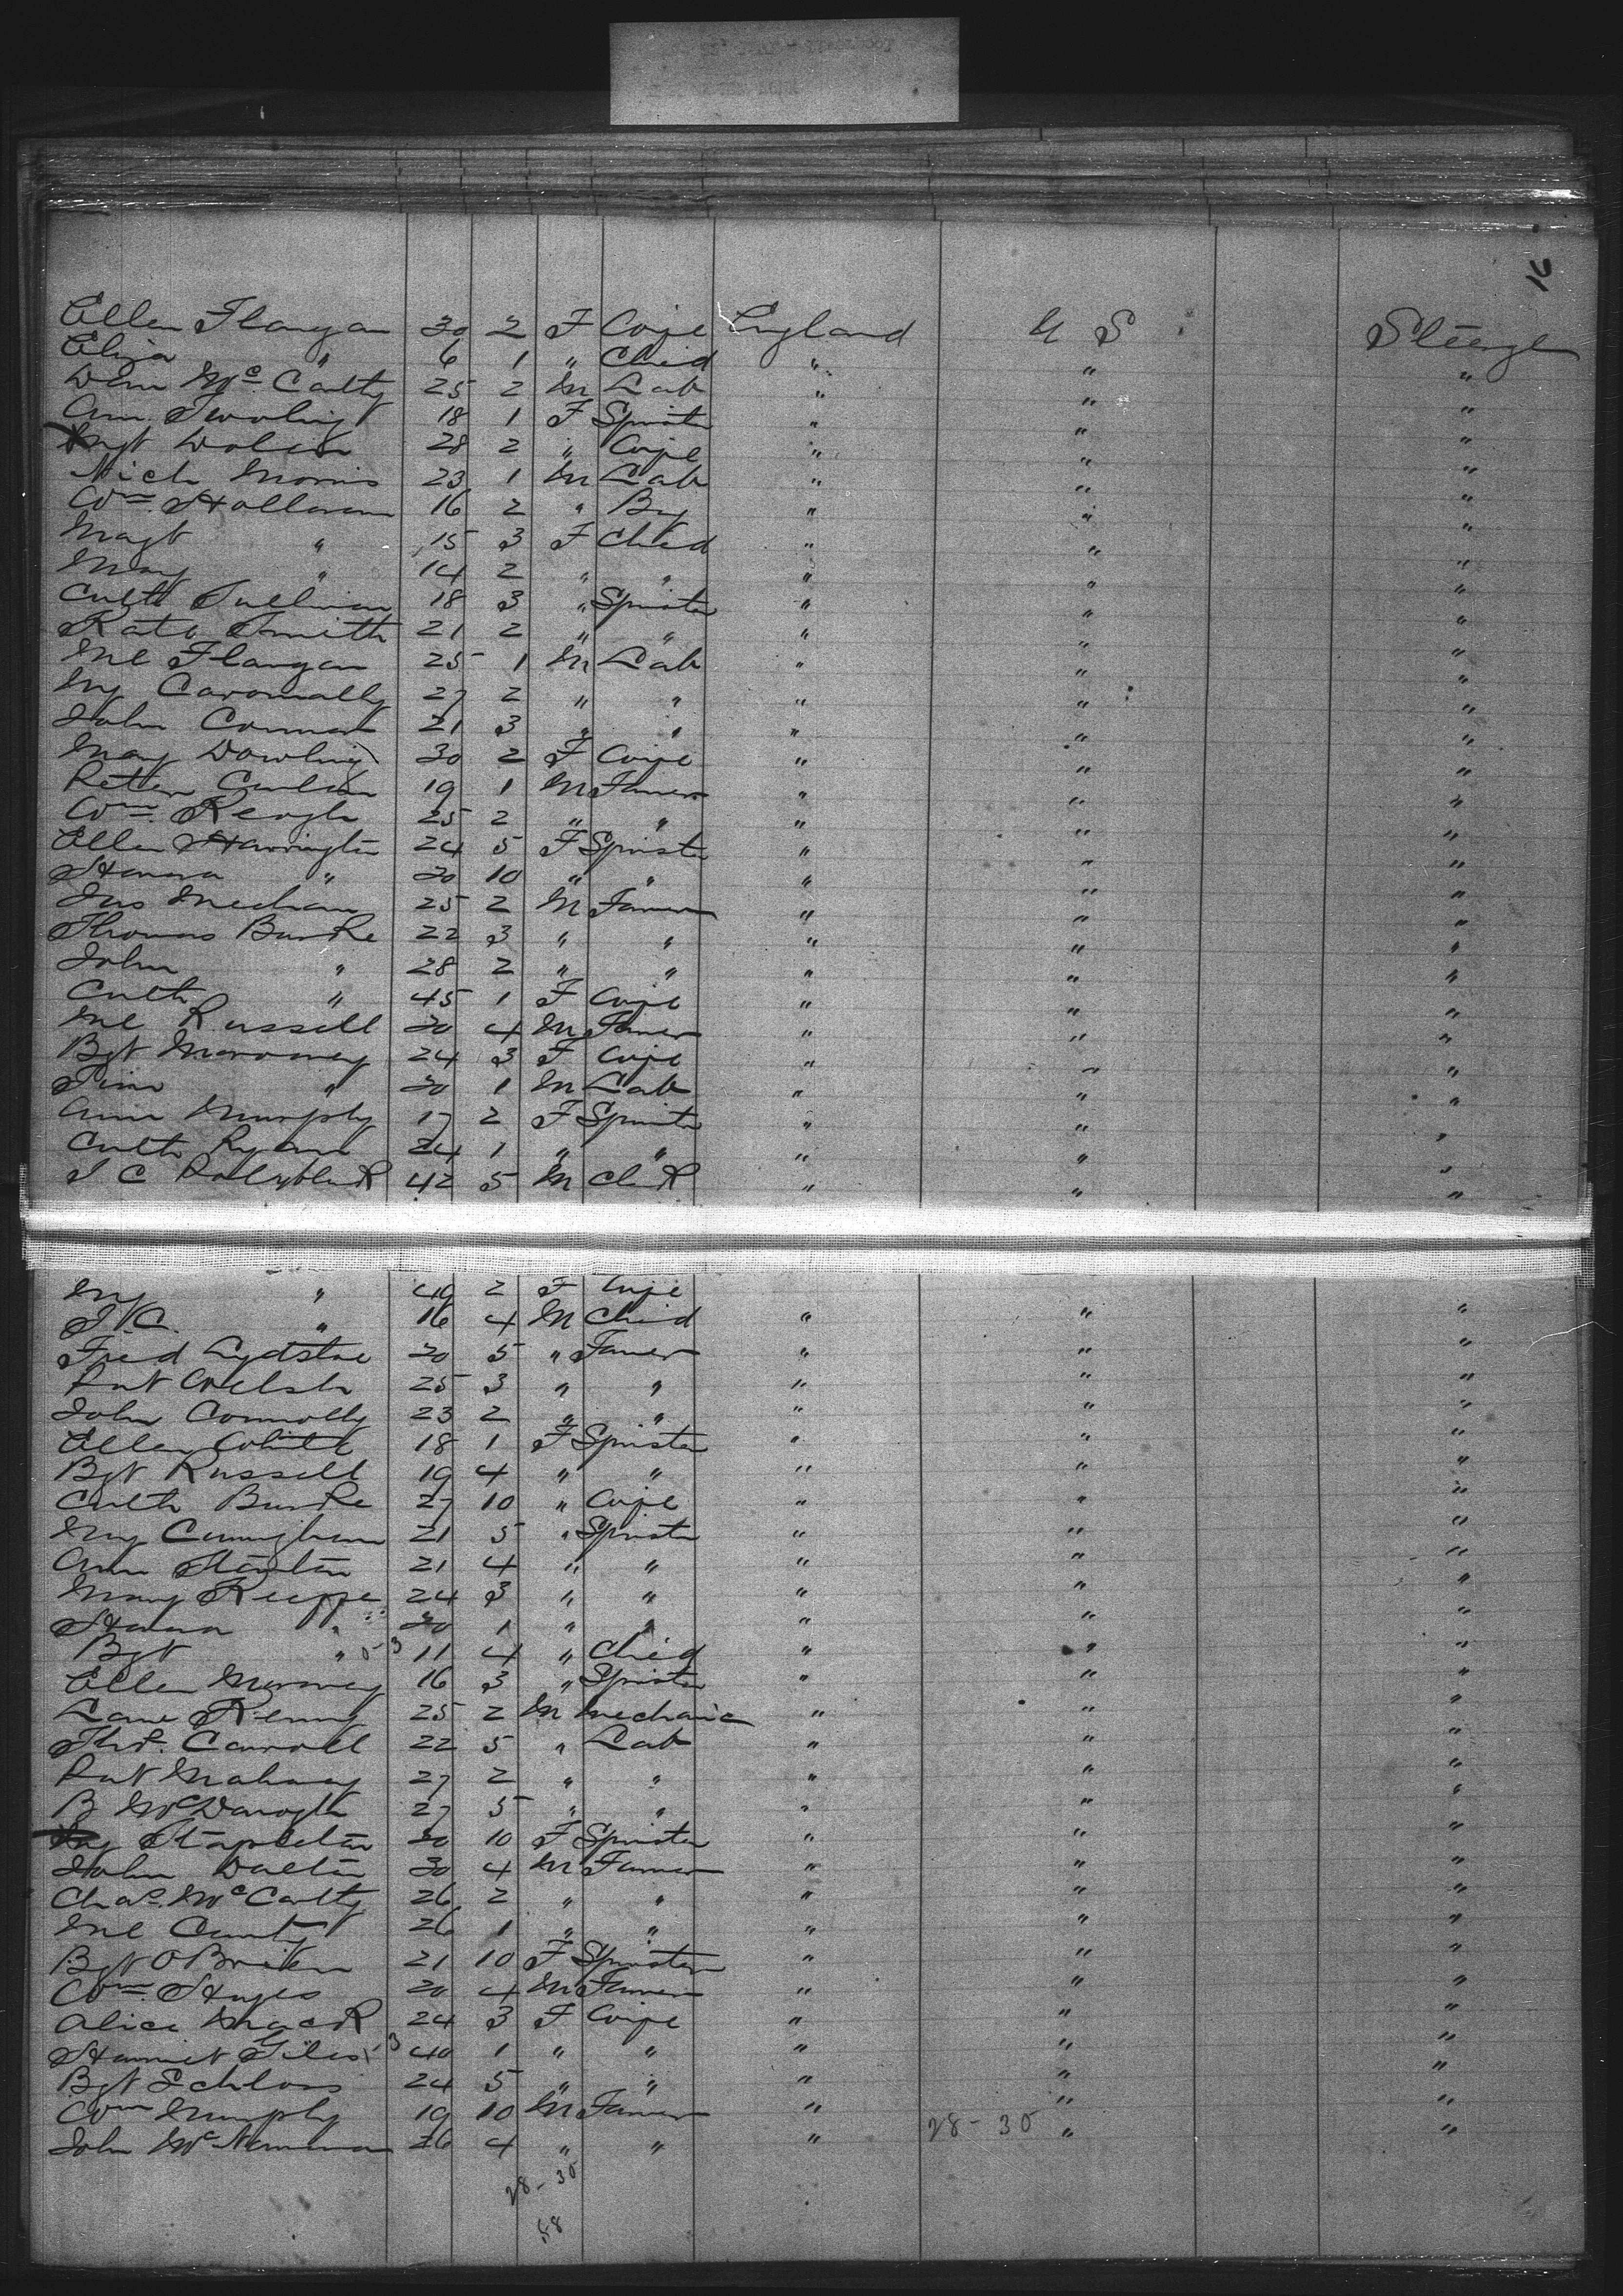 Ellen Flangan 30 2 F Wife England U S Steerage
Eliza " 6 1 " Child " " "
Denn McCarthy 25 2 M Lab " " "
Ann 18 1 F Spinster " " "
Mgt Dolan 28 2 " Wife " " "
Mich Morris 23 1 M Lab " " "
Wm Halloran 16 2 " Boy " " "
Magt " 15 3 F Child " " "
Mary " 14 2 " " " " "
Cath Sullivan 18 3 " Spinster " " "
Kate Smith 21 2 " " " " "
Ml Flangan 25 1 M Lab " " "
My 27 2 " " " " "
John 21 3 " " " " "
Mary Dowling 30 2 F Wife " " "
19 1 M Farmer " " "
Wm Keogh 25 2 " " " " "
Ellen Harrington 24 5 F Spinster " " "
Hanora " 20 10 " " " " "
Jas Meehan 25 2 M Farmer " " "
Thomas Burke 22 3 " " " " "
John " 28 2 " " " " "
Cath " 45 1 F Wife " " "
Ml Russell 20 4 M Farmer " " "
Bgt Moroney 24 3 F Wife " " "
Tim " 30 1 M Lab " " "
Ann Murphy 17 2 F Spinster " " "
Cath Ryan 24 1 " " " " "
J C 42 5 M Clerk " " "
My " 40 2 F Wife
J C. " 16 4 M Child " " "
Fred 20 5 " Farmer " " "
Pat Welsh 25 3 " " " " "
John Connolly 23 2 " " " " "
Ellen White 18 1 F Spinster " " "
Bgt Russell 19 4 " " " " "
Cath Burke 27 10 " Wife " " "
My Cunningham 21 5 " Spinster " " "
Ann Stanton 21 4 " " " " "
Mary Keeffe 24 3 " " " " "
Hanora " 20 1 " " " " "
Bgt " 11 4 " Child " " "
Ellen Moroney 16 3 " Spinster " " "
Kenny 25 2 M Mechanic " " "
Thos. Carroll 22 5 " Lab " " "
Pat Mahony 27 2 " " " " "
B McDanogh 27 5 " " " " "
My Stapleton 20 10 F Spinster " " "
John Dalton 30 4 M Farmer " " "
Chas. McCarthy 26 2 " " " " "
Ml 26 1 " " " " "
Bgt OBrien 21 10 F Spinster " " "
Wm Hayes 20 4 M Farmer " " "
Alice Mack 24 3 F Wife " " "
Harriet Giles 40 1 " " " " "
Bgt Schloss 24 5 " " " " "
Wm Murphy 19 10 M Farmer " " "
John McNamara 26 4 " " " 28-30 " "
28-30
58